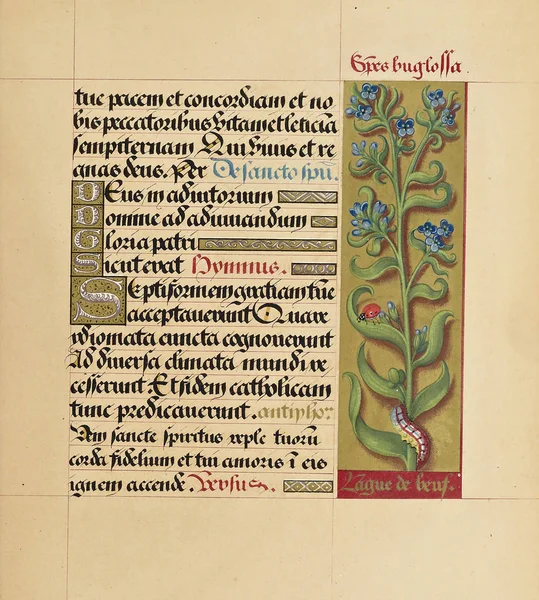 Spēs buglossa.
tue pacem et concordiam et no
bis peccatoribus vitam et leticiā
sempiternam Qui viuis et re
gnas deus. Per De sancto spū.
Deus in adiutorium
Domine ad adiuuandum
Gloria patri
Sicut erat Hymnus.
Septiformem gratiam tūc
acceptauerunt Quare
ydiomata cuncta cognouerunt
Ad diuersa climata mundi re
cesserunt Et fidem catholicam
tunc predicauerunt. antiphoꝛ
Veni sancte spiritus reple tuorū
corda fidelium et tui amoris ī eis
ignem accende. Versus.
Lague de beuf.